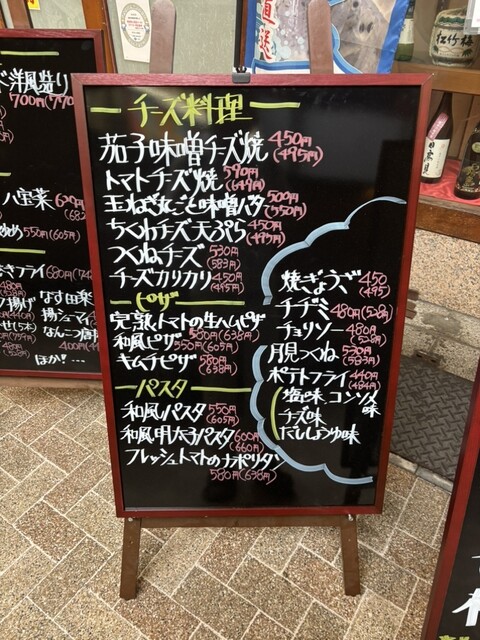 チーズ料理
茄子味噌チーズ焼 450円(495円)
トマトチーズ焼 590円(649円)
玉ねぎ丸ごと味噌バタ 500円(550円)
ちくわチーズ天ぷら 450円(495円)
つくねチーズ 530円(583円)
チーズカリカリ 450円(495円)
ピザ
完熟トマトの生ハムピザ 580円(638円)
和風ピザ 550円(605円)
キムチピザ 580円(638円)
パスタ
和風パスタ 550円(605円)
和風明太子パスタ 600円(660円)
フレッシュトマトのナポリタン 580円(638円)
焼ぎょうざ 450(495)
チヂミ 480円(528円)
チョリソー 480円(528円)
月見つくね 530円(583円)
ポテトフライ 440円(484円)
塩味 コンソメ味
チーズ味
だししょうゆ味
洋風造り
700円(770
八宝菜
550円(605円)
きフライ 680円
なす田楽
揚シューマイ
なんこつ唐
ほか!…
直送
松竹梅